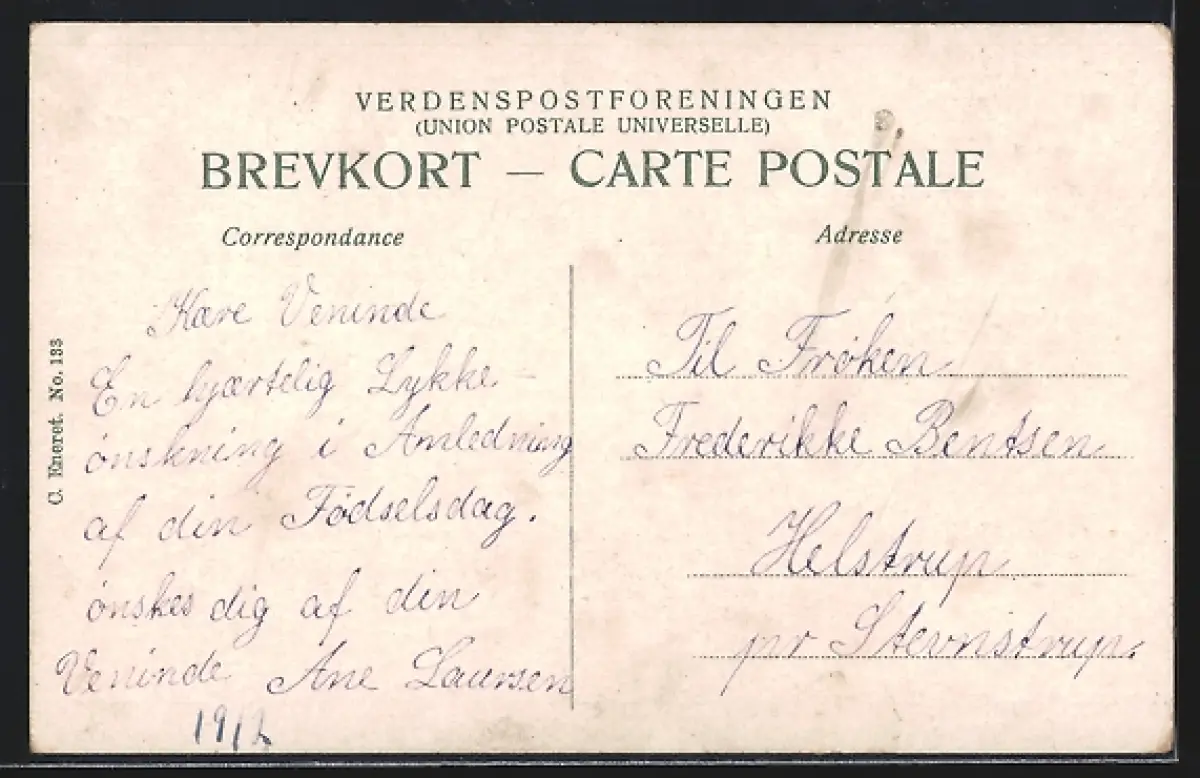 VERDENSPOSTFORENINGEN
(UNION POSTALE UNIVERSELLE)
BREVKORT — CARTE POSTALE
Correspondance
Adresse
C. Eneret. No. 133
Kære Veninde
En hjærtelig Lykke
ønskning i Anledning
af din Födselsdag.
ønskes dig af din
Veninde Ane Laursen
1912
Til Frøken
Frederikke Bentsen
Helstrup
pr Stevnstrup.